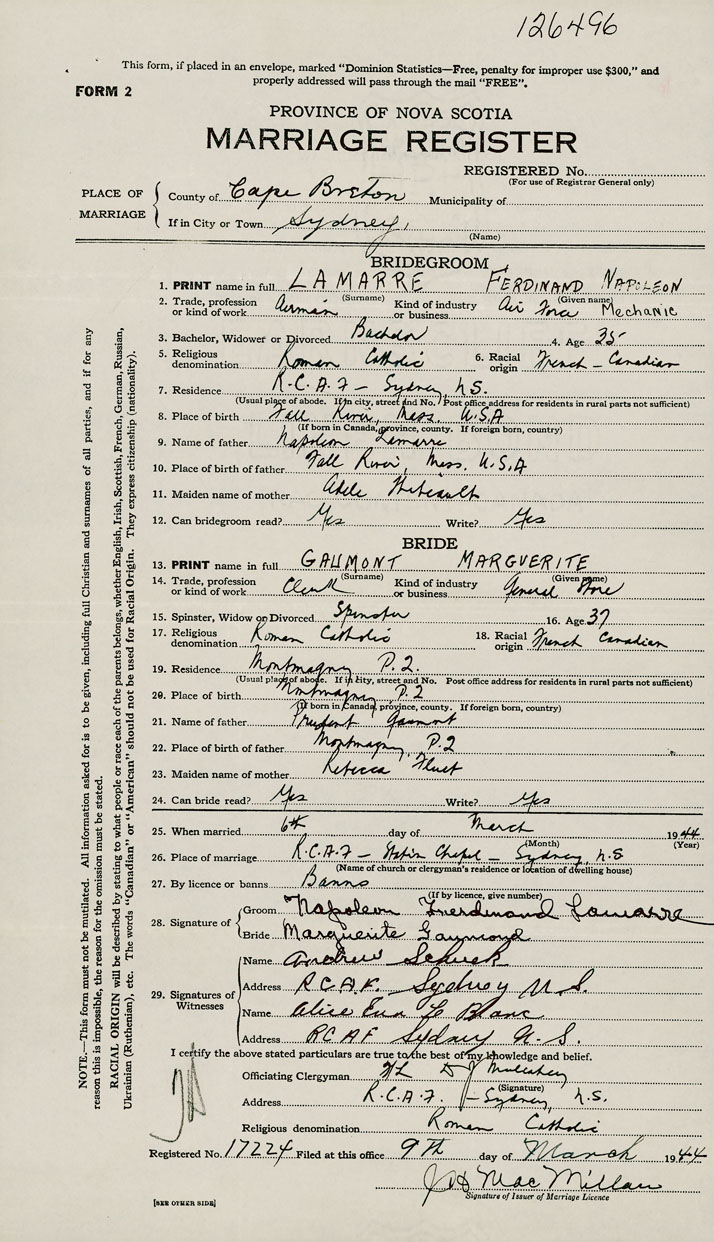 126496
This form, if placed in an envelope, marked “Dominion Statistics—Free, penalty for improper use $300,” and
properly addressed will pass through the mail “FREE”.
FORM 2
PROVINCE OF NOVA SCOTIA
MARRIAGE REGISTER
REGISTERED No.
(For use of Registrar General only)
PLACE OF MARRIAGE
County of Cape Breton Municipality of
If in City or Town Sydney,
(Name)
BRIDEGROOM
1. PRINT name in full LAMARRE FERDINAND NAPOLEON
(Surname) (Given name)
2. Trade, profession or kind of work Airman Kind of industry or business Air Force Mechanic
3. Bachelor, Widower or Divorced Bachelor 4. Age 35
5. Religious denomination Roman Catholic 6. Racial origin French - Canadian
7. Residence R.C.A.F - Sydney, N.S.
(Usual place of abode. If in city, street and No. Post office address for residents in rural parts not sufficient)
8. Place of birth Fall River, Mass. U.S.A
(If born in Canada, province, county. If foreign born, country)
9. Name of father Napoleon Lamarre
10. Place of birth of father Fall River, Mass. U.S.A
11. Maiden name of mother Adele Thibeault
12. Can bridegroom read? Yes Write? Yes
BRIDE
13. PRINT name in full GAUMONT MARGUERITE
(Surname) (Given name)
14. Trade, profession or kind of work Clerk Kind of industry or business General Store
15. Spinster, Widow or Divorced Spinster 16. Age 37
17. Religious denomination Roman Catholic 18. Racial origin French Canadian
19. Residence Montmagny P.Q.
(Usual place of abode. If in city, street and No. Post office address for residents in rural parts not sufficient)
20. Place of birth Montmagny P.Q
(If born in Canada, province, county. If foreign born, country)
21. Name of father Prudent Gaumont
22. Place of birth of father Montmagny, P.Q
23. Maiden name of mother Rebecca Fluet
24. Can bride read? Yes Write? Yes
25. When married 6th day of March 1944
(Month) (Year)
26. Place of marriage R.C.A.F - Station Chapel - Sydney, N.S
(Name of church or clergyman's residence or location of dwelling house)
27. By licence or banns Banns
(If by licence, give number)
28. Signature of Groom Napoleon Ferdinand Lamarre
Bride Marguerite Gaumond
29. Signatures of Witnesses
Name Andrew
Address R.C.A.F. Sydney N.S.
Name Alice Eva Le Blanc
Address RCAF Sydney N.S.
I certify the above stated particulars are true to the best of my knowledge and belief.
Officiating Clergyman F/L
(Signature)
Address R.C.A.F. - Sydney, N.S.
Religious denomination Roman Catholic
Registered No. 17224 Filed at this office 9th day of March 1944
J H MacMillan
Signature of Issuer of Marriage Licence
[SEE OTHER SIDE]
NOTE.—This form must not be mutilated. All information asked for is to be given, including full Christian and surnames of all parties, and if for any
reason this is impossible, the reason for the omission must be stated.
RACIAL ORIGIN will be described by stating to what people or race each of the parents belongs, whether English, Irish, Scottish, French, German, Russian,
Ukrainian (Ruthenian), etc. The words “Canadian” or “American” should not be used for Racial Origin. They express citizenship (nationality).